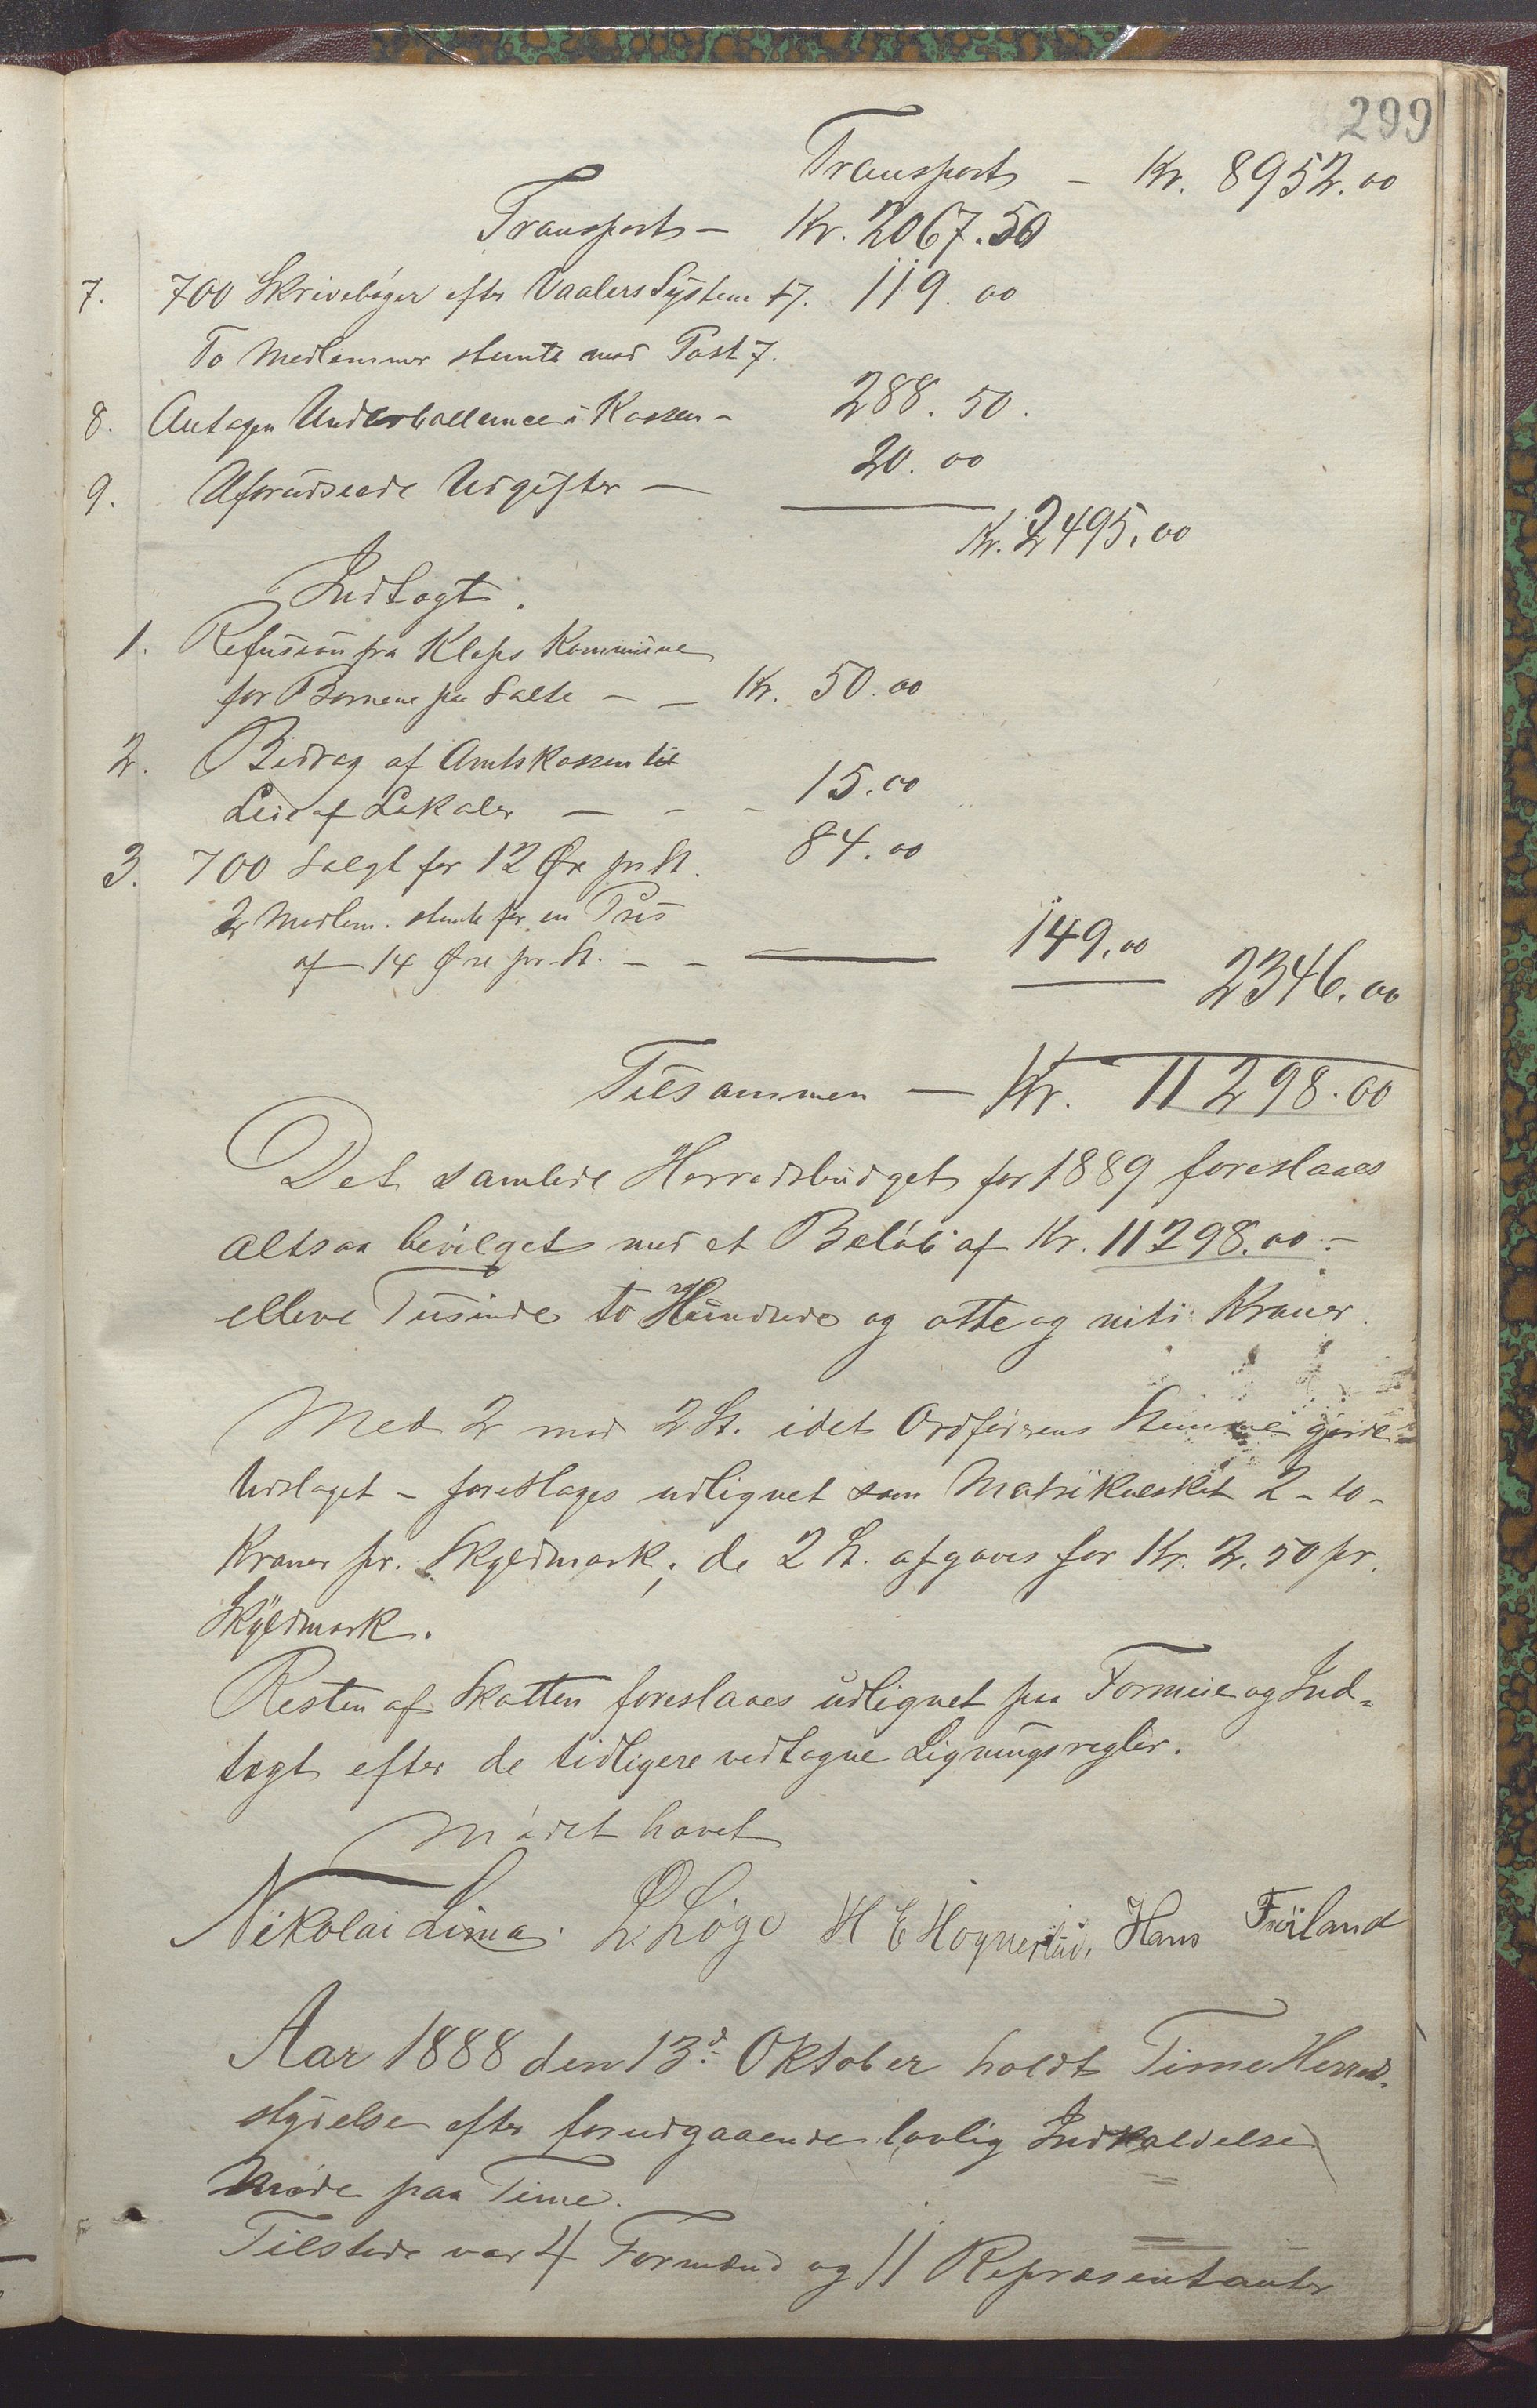 299
Transport – Kr. 8952.00
Transport – Kr. 2067.50
7. 700 Skrivebøger efter Vaalers System 17. 119.00
To Medlemmer stemte mod Post 7.
8. Antagen Underballence i Kassen – 288.50.
9. Uforudseede Udgifter – 20.00
Kr. 2495.00
Indtægt.
1. Refusion fra Kleps Kommune
for Børnene paa Salte – – Kr. 50.00
2. Bidrag af Amtskassen til
Leie af Lokaler – – – 15.00
3. 700 Solgt for 12 Øre pr St. 84.00
2 Medlem. stemte for en Pris
af 14 Øre pr. St. – – 149.00 2346.00
Tilsammen – Kr. 11298.00
Det samlede Herredsbudget for 1889 foreslaaes
altsaa bevilget med et Beløb af Kr. 11298.00 –
elleve Tusinde to Hundrede og otte og niti Kroner.
Med 2 mod 2 St. idet Ordførerens Stemme gjorde
Udslaget – foreslages udlignet som Matrikulskat 2 – to –
Kroner pr. Skyldmark; de 2 St. afgaves for Kr. 2.50 pr.
Skyldmark.
Resten af Skatten foreslaaes udlignet paa Formue og Ind-
tægt efter de tidligere vedtagne Ligningsregler.
Mødet hævet
Nikolai Lima. L. Løge H E Hognestad, Hans Frøiland
Aar 1888 den 13d. Oktober holdt Time Herreds-
styrelse efter forudgaaende lovlig Indkaldelse
Møde paa Time.
Tilstede var 4 Formænd og 11 Repræsentanter